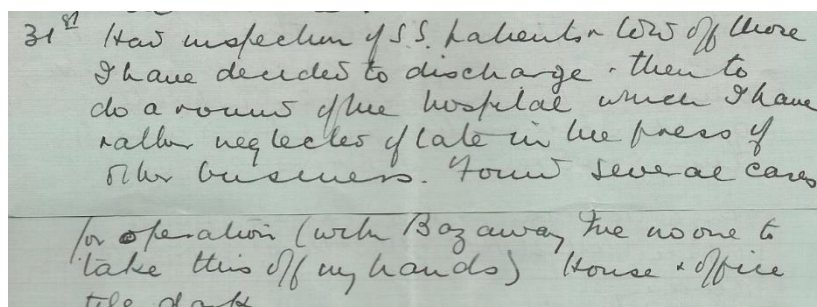 31st Had inspection of S.S. patients & told off those
I have decided to discharge. then to
do a round of the hospital which I have
rather neglected of late in the press of
other business. Found several cases
for operation (with Baz away I've no one to
take this off my hands) House & office
till dark